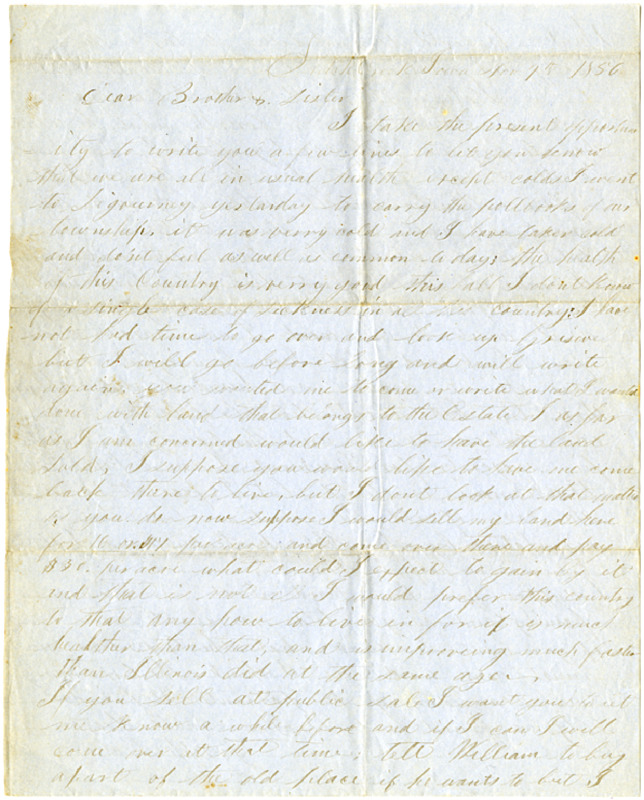 Iowa Nov 15 1856
Dear Brother & Sister
I take the present opportun
ity to write you a few lines to let you know
that we are all in usual health except colds I went
to Sigourney yesterday to carry the pollbooks of our
township, it was verry cold and I have taken cold
and dont feel as well as common to day; the health
of this Country is verry good this fall I dont know
of a single case of sickness in all this country; I have
not had time to go over and look up
but I will go before long and will write
again; you wanted me to come or write what I wanted
done with land that belongs to the Estate I as far
as I am concerned would like to have the land
sold, I suppose you would like to have me come
back there to live, but I dont look at that matter
as you do now suppose I would sell my land here
for 16 or per acre and come over there and pay
$30. per acre what could I expect to gain by it
and that is not all I would prefer this country
to that any how to live in for it is much
healthier than that, and is improveing much faster
than Illinois did at the same age.
If you sell at public sale I want you to let
me know a while before and if I can I will
come over at that time; tell William to buy
apart of the old place if he wants to but I